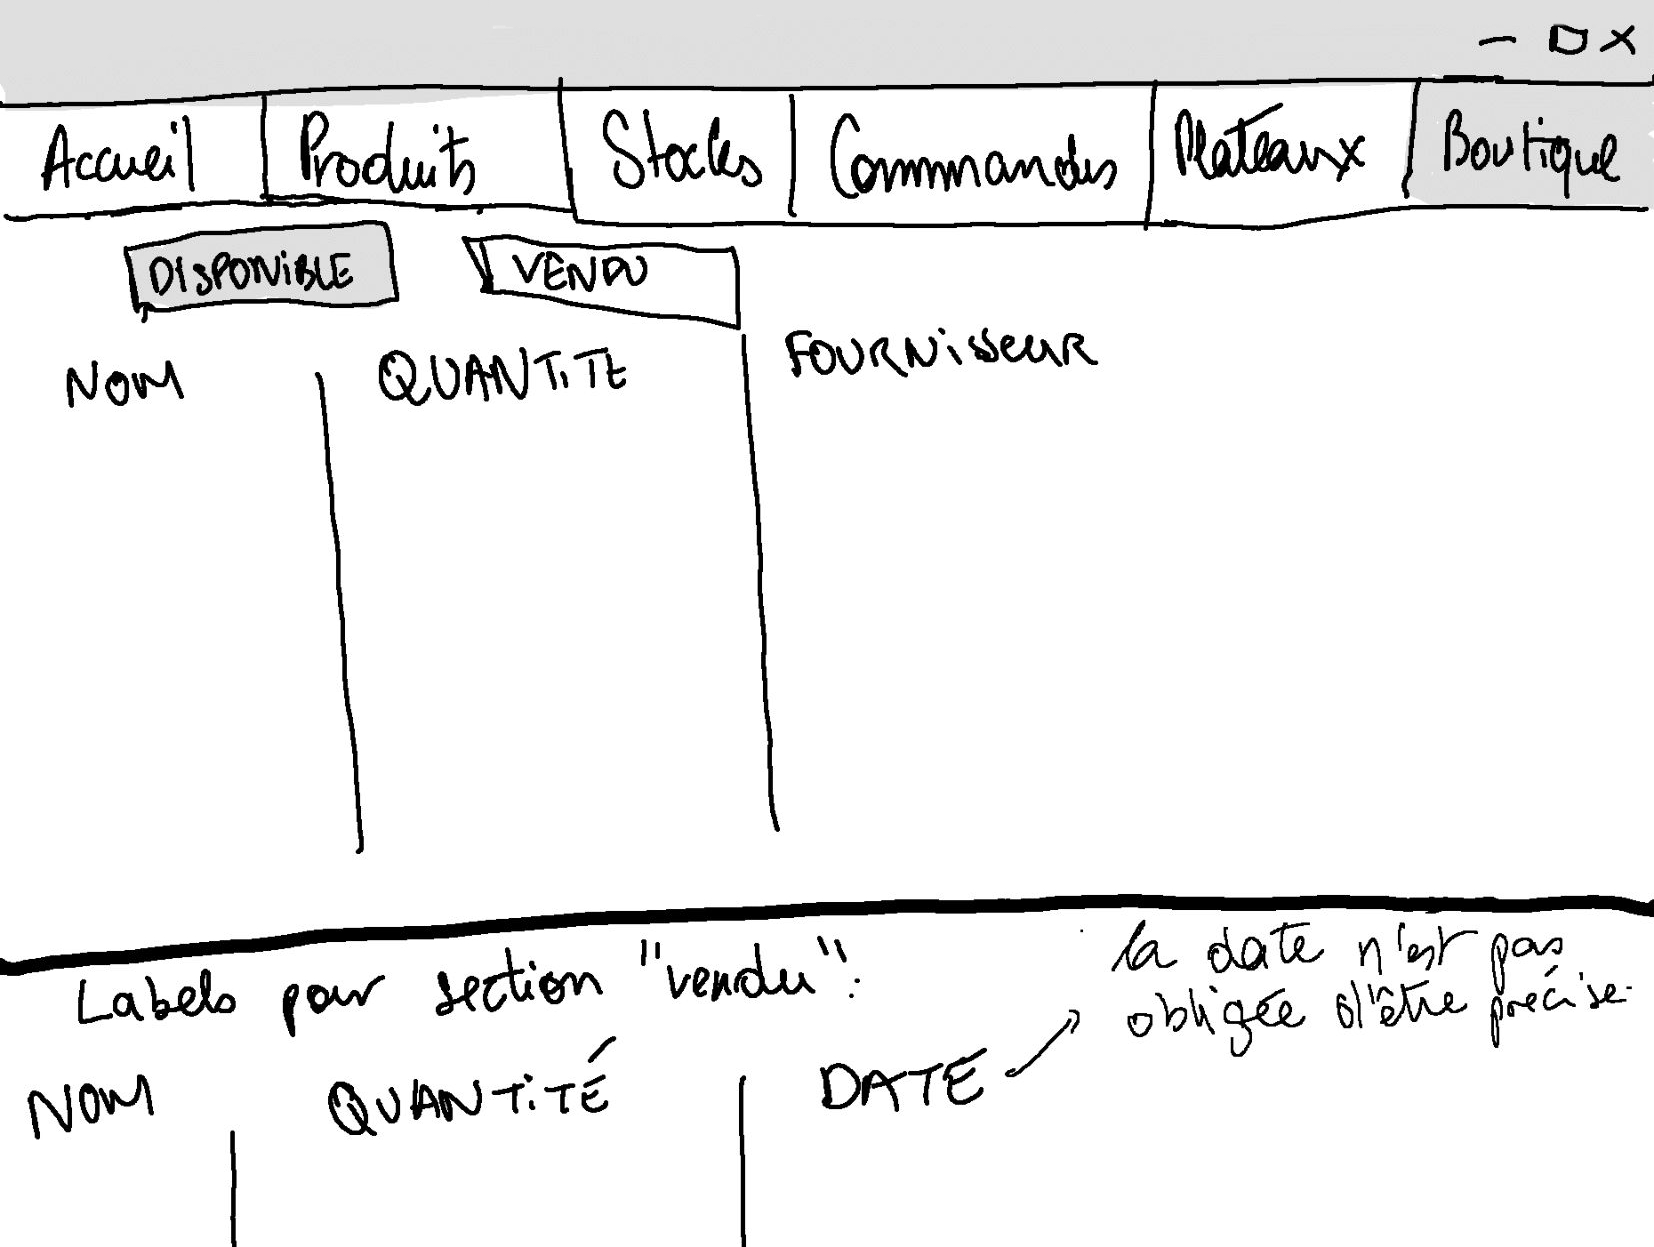 Accueil Produits Stocks Commandes Plateaux Boutique
DISPONIBLE VENDU
NOM QUANTITE FOURNISSEUR
Labels pour section "vendu":
la date n'est pas
obligée d'être précise.
NOM QUANTITÉ DATE